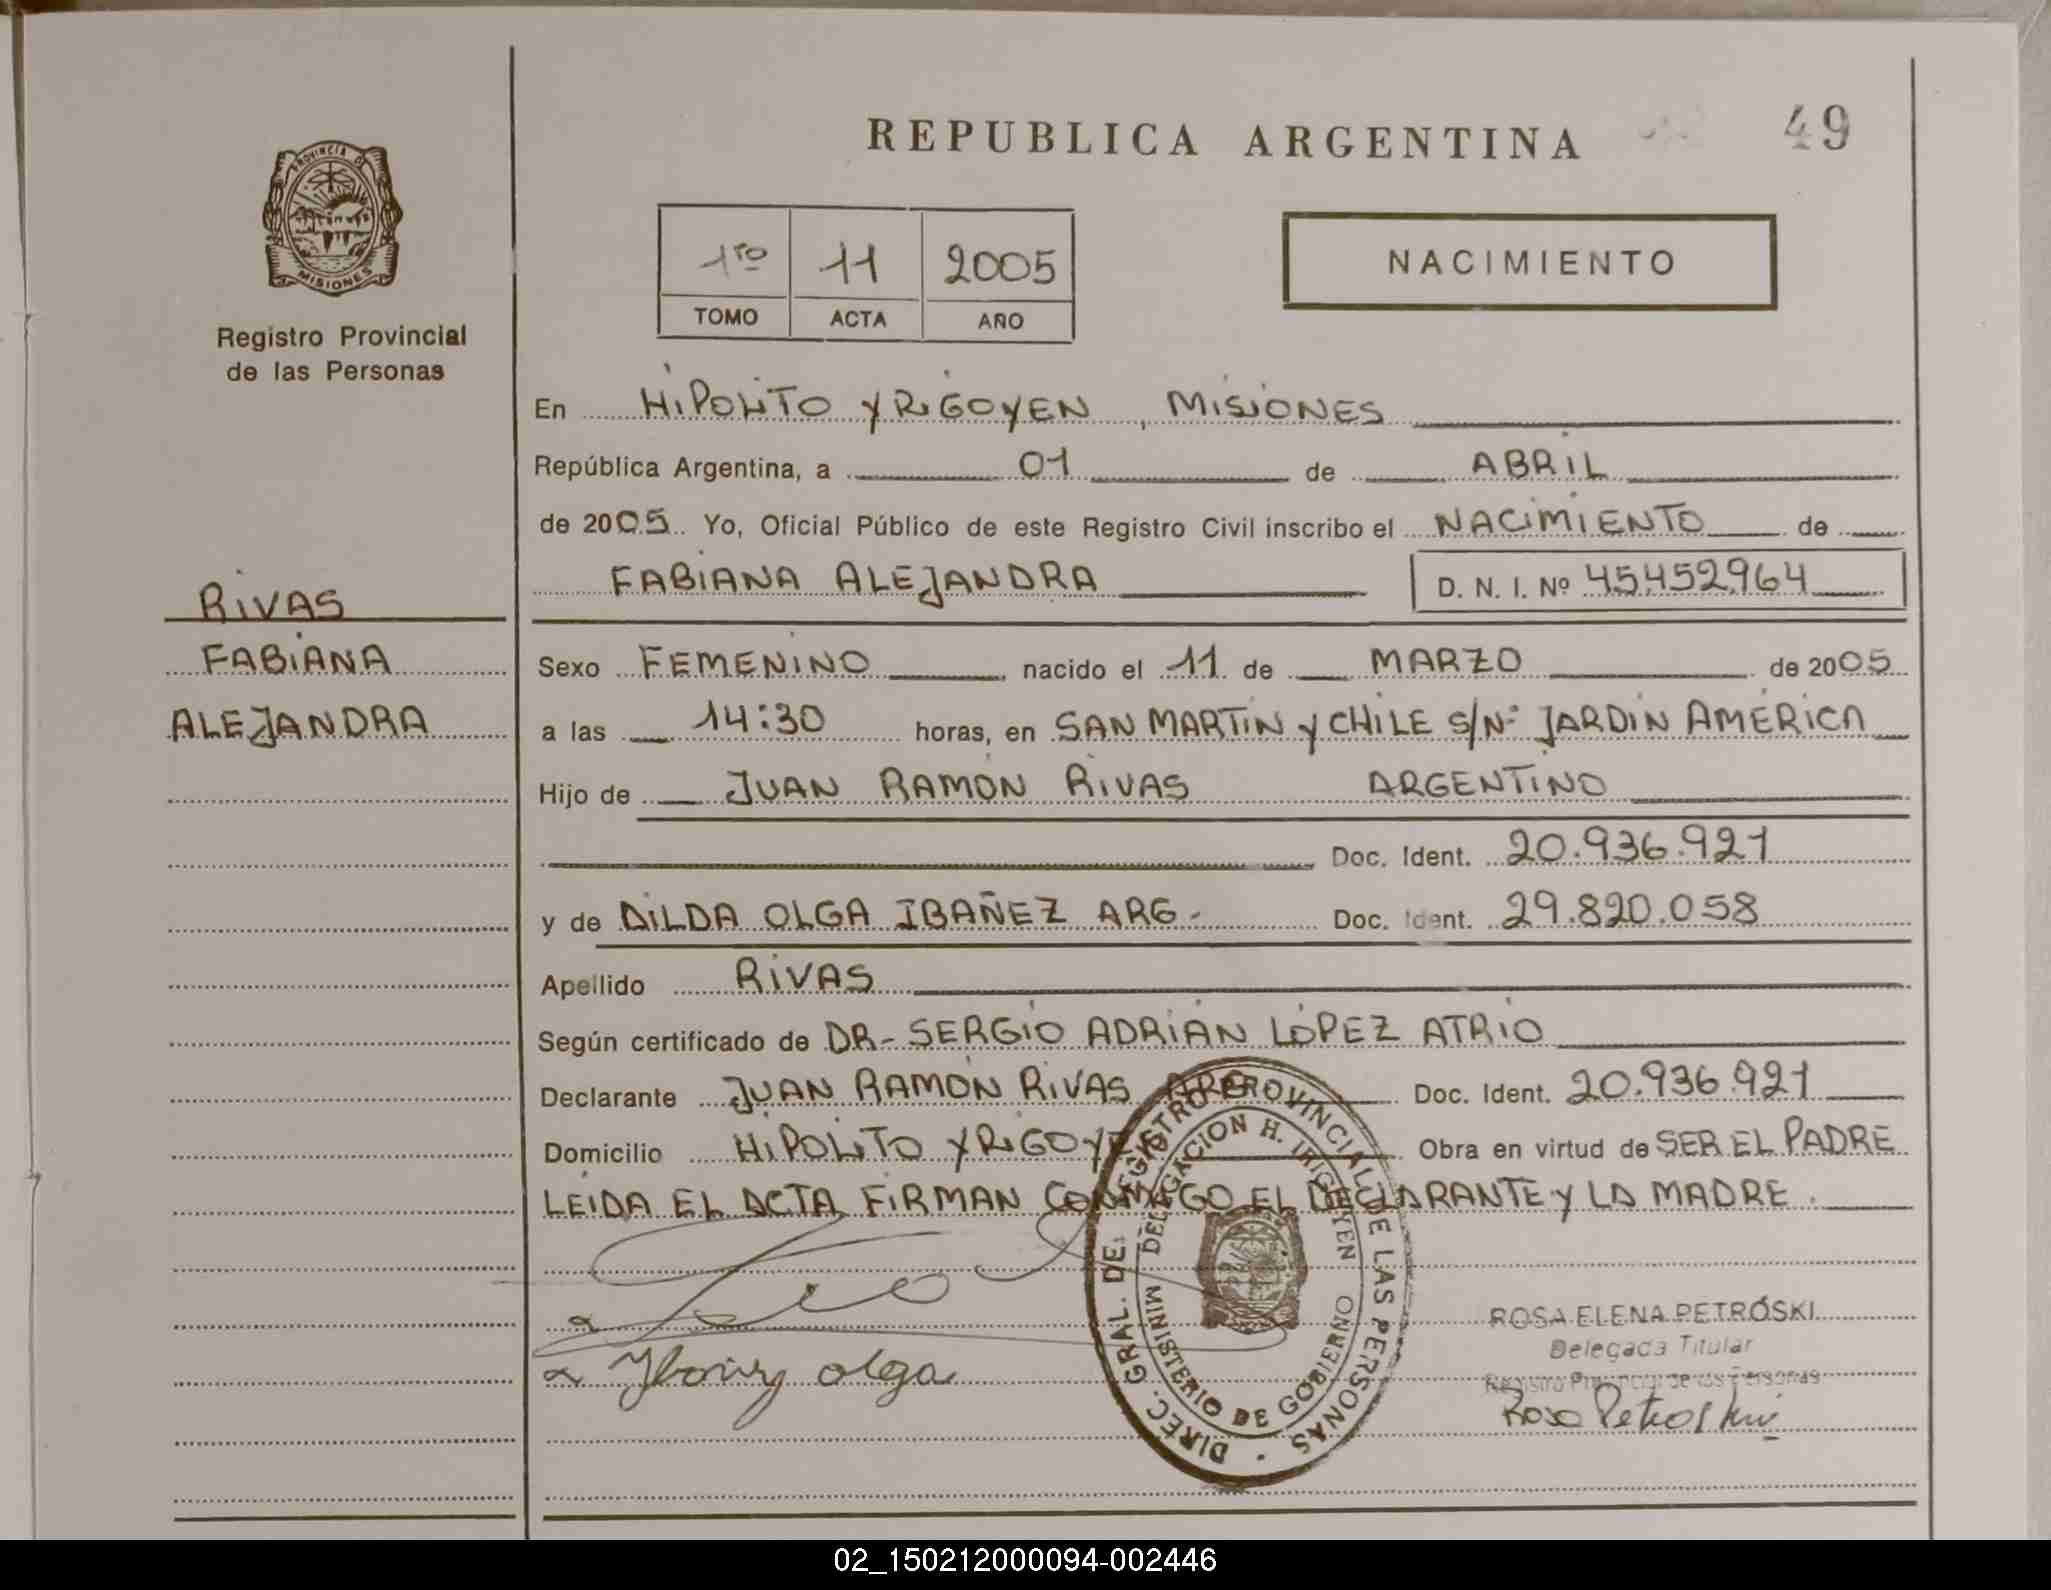 REPUBLICA ARGENTINA
49
PROVINCIA D
MISIONES
Registro Provincial
de las Personas
1ro 11 2005
TOMO ACTA AÑO
NACIMIENTO
En HIPOLITO YRIGOYEN, MISIONES
República Argentina, a 01 de ABRIL
de 2005 Yo, Oficial Público de este Registro Civil inscribo el NACIMIENTO de
FABIANA ALEJANDRA D. N. I. Nº 45.452.964
RIVAS
FABIANA
ALEJANDRA
Sexo FEMENINO nacido el 11 de MARZO de 2005
a las 14:30 horas, en SAN MARTIN Y CHILE S/Nº JARDIN AMÉRICA
Hijo de JUAN RAMÓN RIVAS ARGENTINO
Doc. Ident. 20.936.921
y de DILDA OLGA IBAÑEZ ARG- Doc. Ident. 29.820.058
Apellido RIVAS
Según certificado de DR- SERGIO ADRIÁN LÓPEZ ATRIO
Declarante JUAN RAMÓN RIVAS ARG Doc. Ident. 20.936.921
Domicilio HIPOLITO YRIGOYEN Obra en virtud de SER EL PADRE
LEIDA EL ACTA FIRMAN CONMIGO EL DECLARANTE Y LA MADRE.
DIREC. GRAL. DE REGISTRO PROVINCIAL DE LAS PERSONAS
DELEGACION H. IRIGOYEN
MINISTERIO DE GOBIERNO
olga
ROSA ELENA PETROSKI
Delegada Titular
Registro Provincial de las Personas
Rosa Petroski
02_150212000094-002446